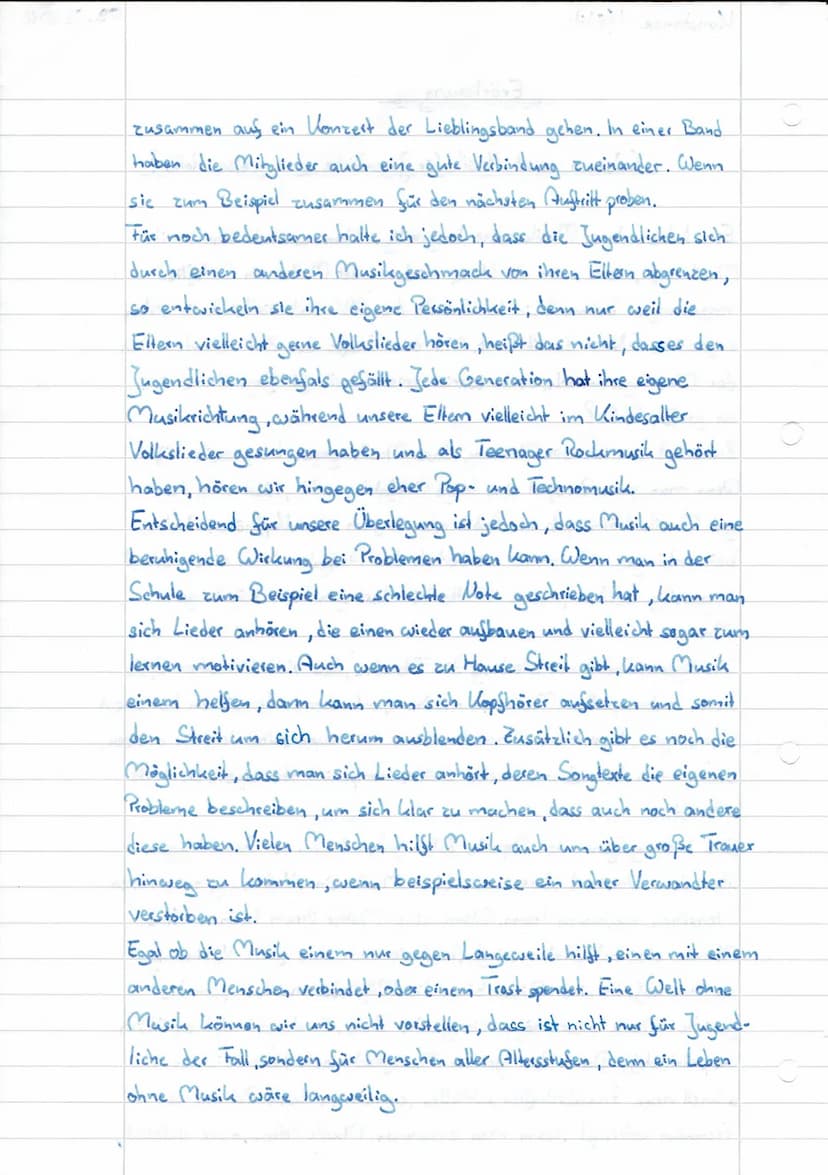 zusammen auf ein Konzert der Lieblingsband gehen. In einer Band
haben die Mitglieder auch eine gute Verbindung zueinander. Wenn
sie zum Beispiel zusammen für den nächsten Auftritt proben.
Für noch bedeutsamer halte ich jedoch, dass die Jugendlichen sich
durch einen anderen Musikgeschmack von ihren Eltern abgrenzen,
so entwickeln sie ihre eigene Persönlichkeit, denn nur weil die
Eltern vielleicht gerne Volkslieder hören, heißt das nicht, dass es den
Jugendlichen ebenfals gefällt. Jede Generation hat ihre eigene
Musikrichtung, während unsere Eltern vielleicht im Kindesalter
Volkslieder gesungen haben und als Teenager Rockmusik gehört
haben, hören wir hingegen eher Pop- und Technomusik.
Entscheidend für unsere Überlegung ist jedoch, dass Musik auch eine
beruhigende Wirkung bei Problemen haben kann. Wenn man in der
Schule zum Beispiel eine schlechte Note geschrieben hat, kann man
sich Lieder anhören, die einen wieder aufbauen und vielleicht sogar zum
lernen motivieren. Auch wenn es zu Hause Streit gibt, kann Musik
einem helfen, dann kann man sich Kopfhörer aufsetzen und somit
den Streit um sich herum ausblenden. Zusätzlich gibt es noch die
Möglichkeit, dass man sich Lieder anhört, deren Songtexte die eigenen
Probleme beschreiben, um sich klar zu machen, dass auch noch andere
diese haben. Vielen Menschen hilft Musik auch um über große Trauer
hinweg zu kommen, wenn beispielsweise ein naher Verwandter
verstorben ist.
Egal ob die Musik einem nur gegen Langeweile hilft, einen mit einem
anderen Menschen verbindet, oder einem Trost spendet. Eine Welt ohne
Musik können wir uns nicht vorstellen, dass ist nicht nur für Jugend-
liche der Fall, sondern für Menschen aller Altersstufen, denn ein Leben
ohne Musik wäre langweilig.